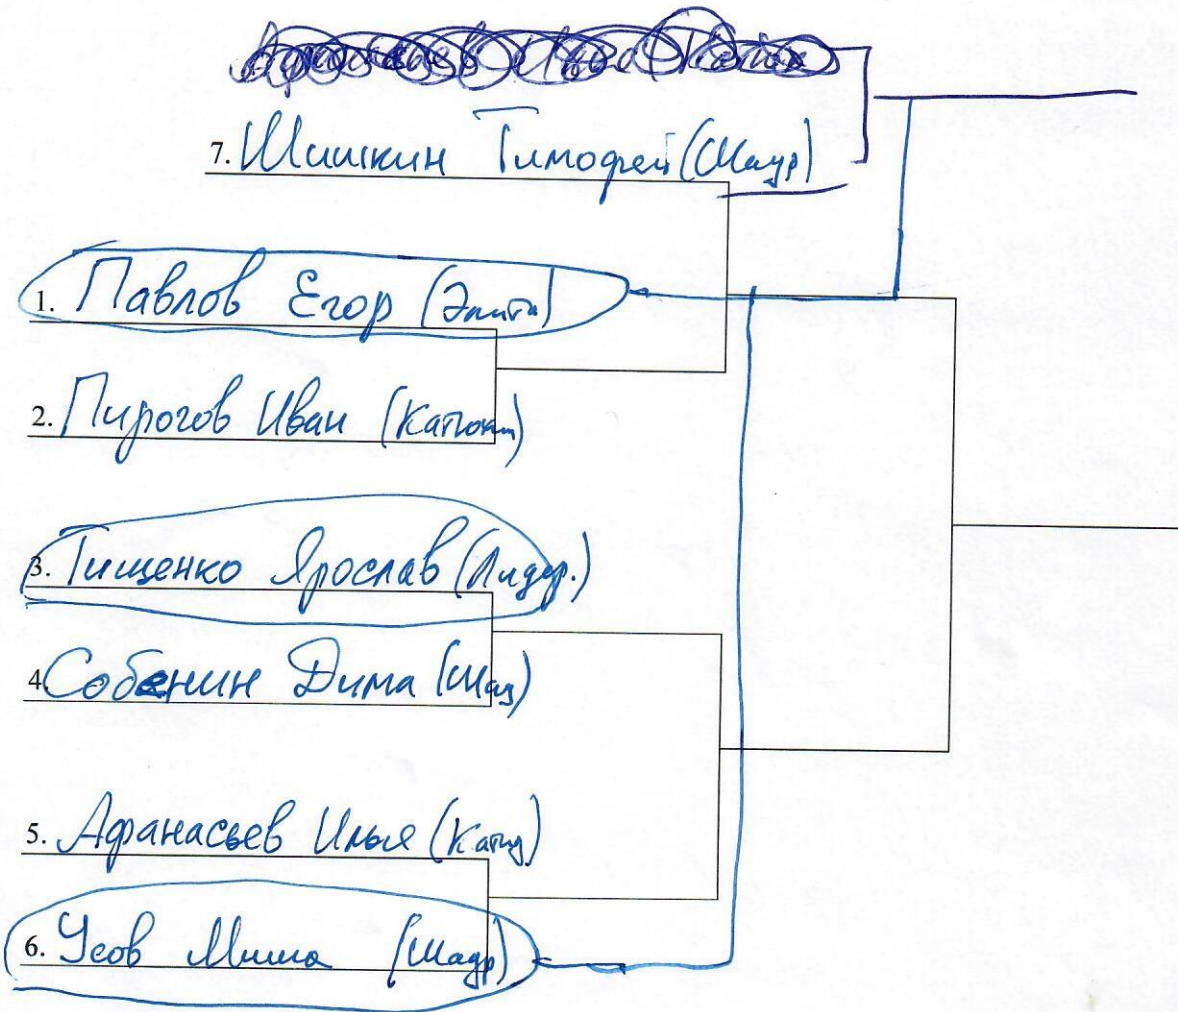 7. Шишкин Тимофей (Шадр)
1. Павлов Егор (Элита)
2. Пирогов Иван
3. Тищенко Ярослав (Лидер.)
4. Собенин Дима (Шад)
5. Афанасьев Илья
6. Усов Миша (Шадр)